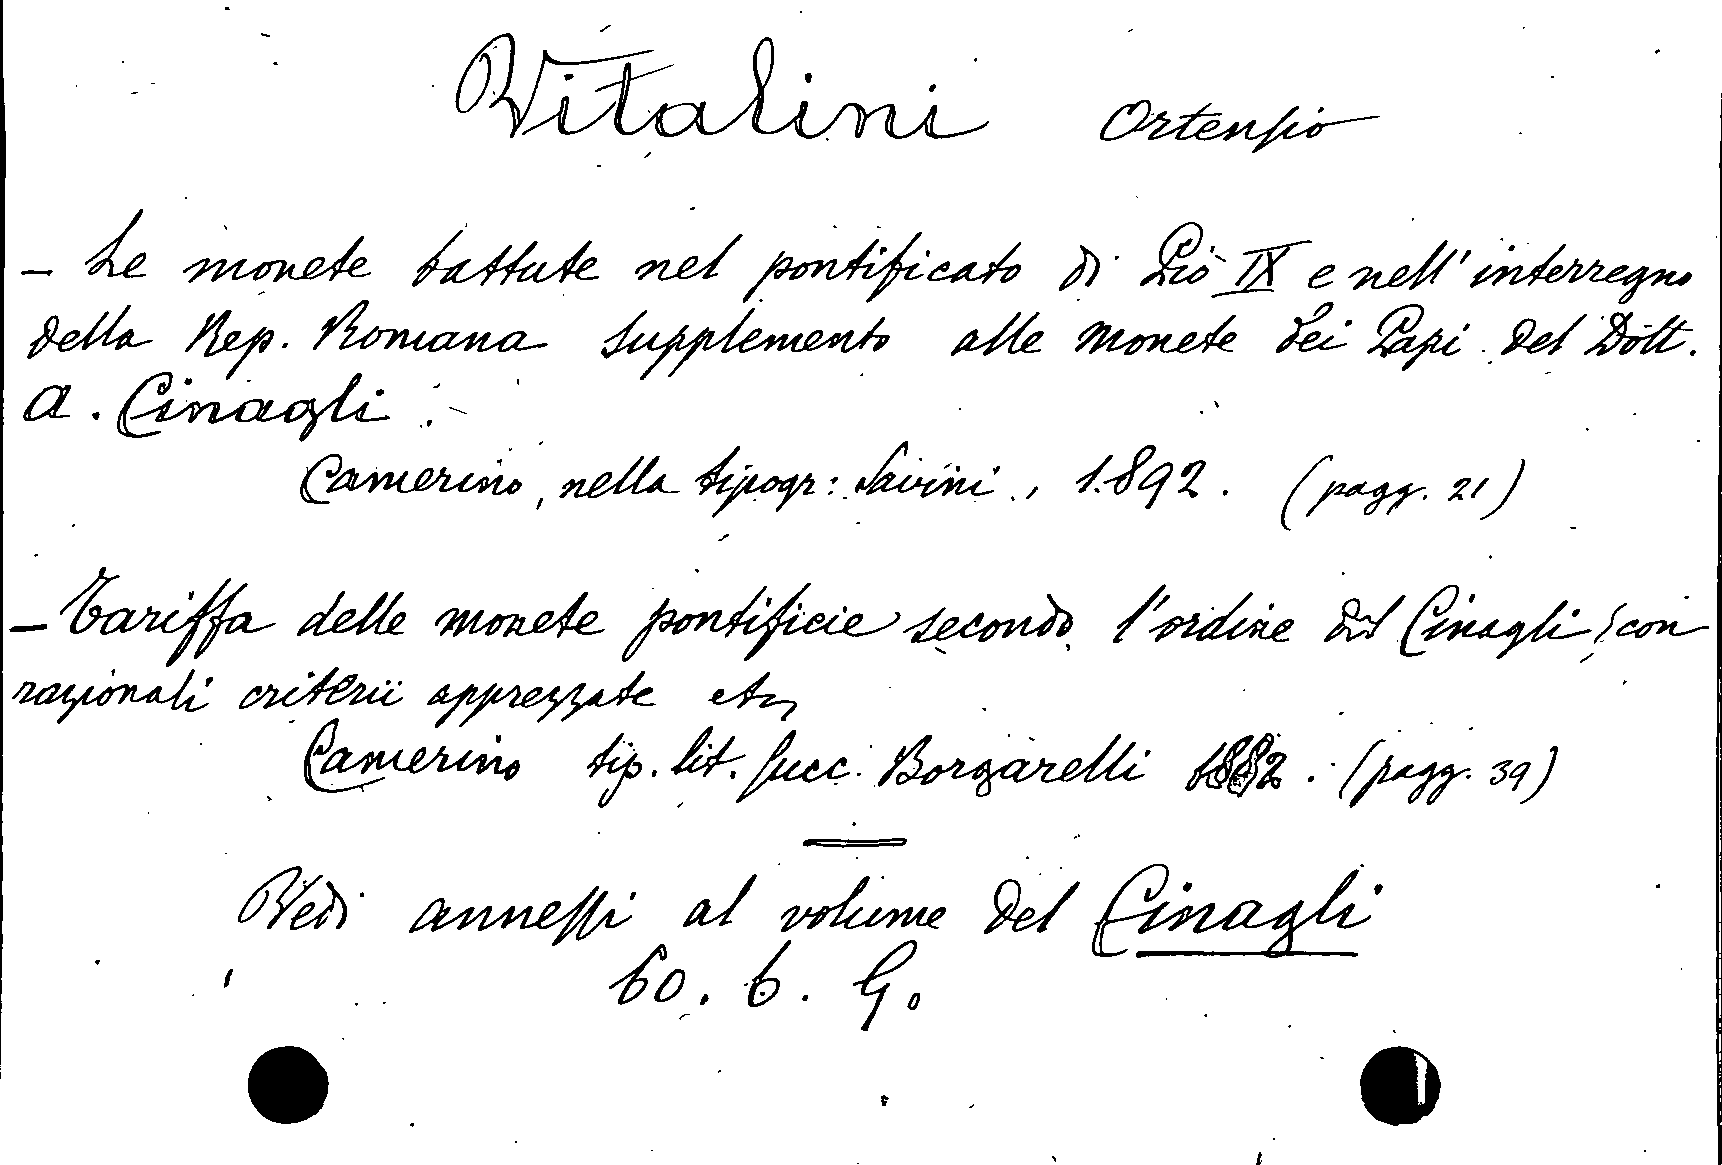 Vitalini Ortensio
- Le monete battute nel pontificato di Pio IX e nell' interregno
della Rep. Romana supplemento alle monete dei Papi del Dott.
A. Cinagli.
Camerino, nella tipogr: Savini., 1892. (pagg. 21)
- Tariffa delle monete pontificie secondo l'ordine del Cinagli, con
razionali criterii apprezzate etc
Camerino tip. lit. succ. Borgarelli 1882. (pagg. 39)
Vedi annessi al volume del Cinagli
60. 6. G.